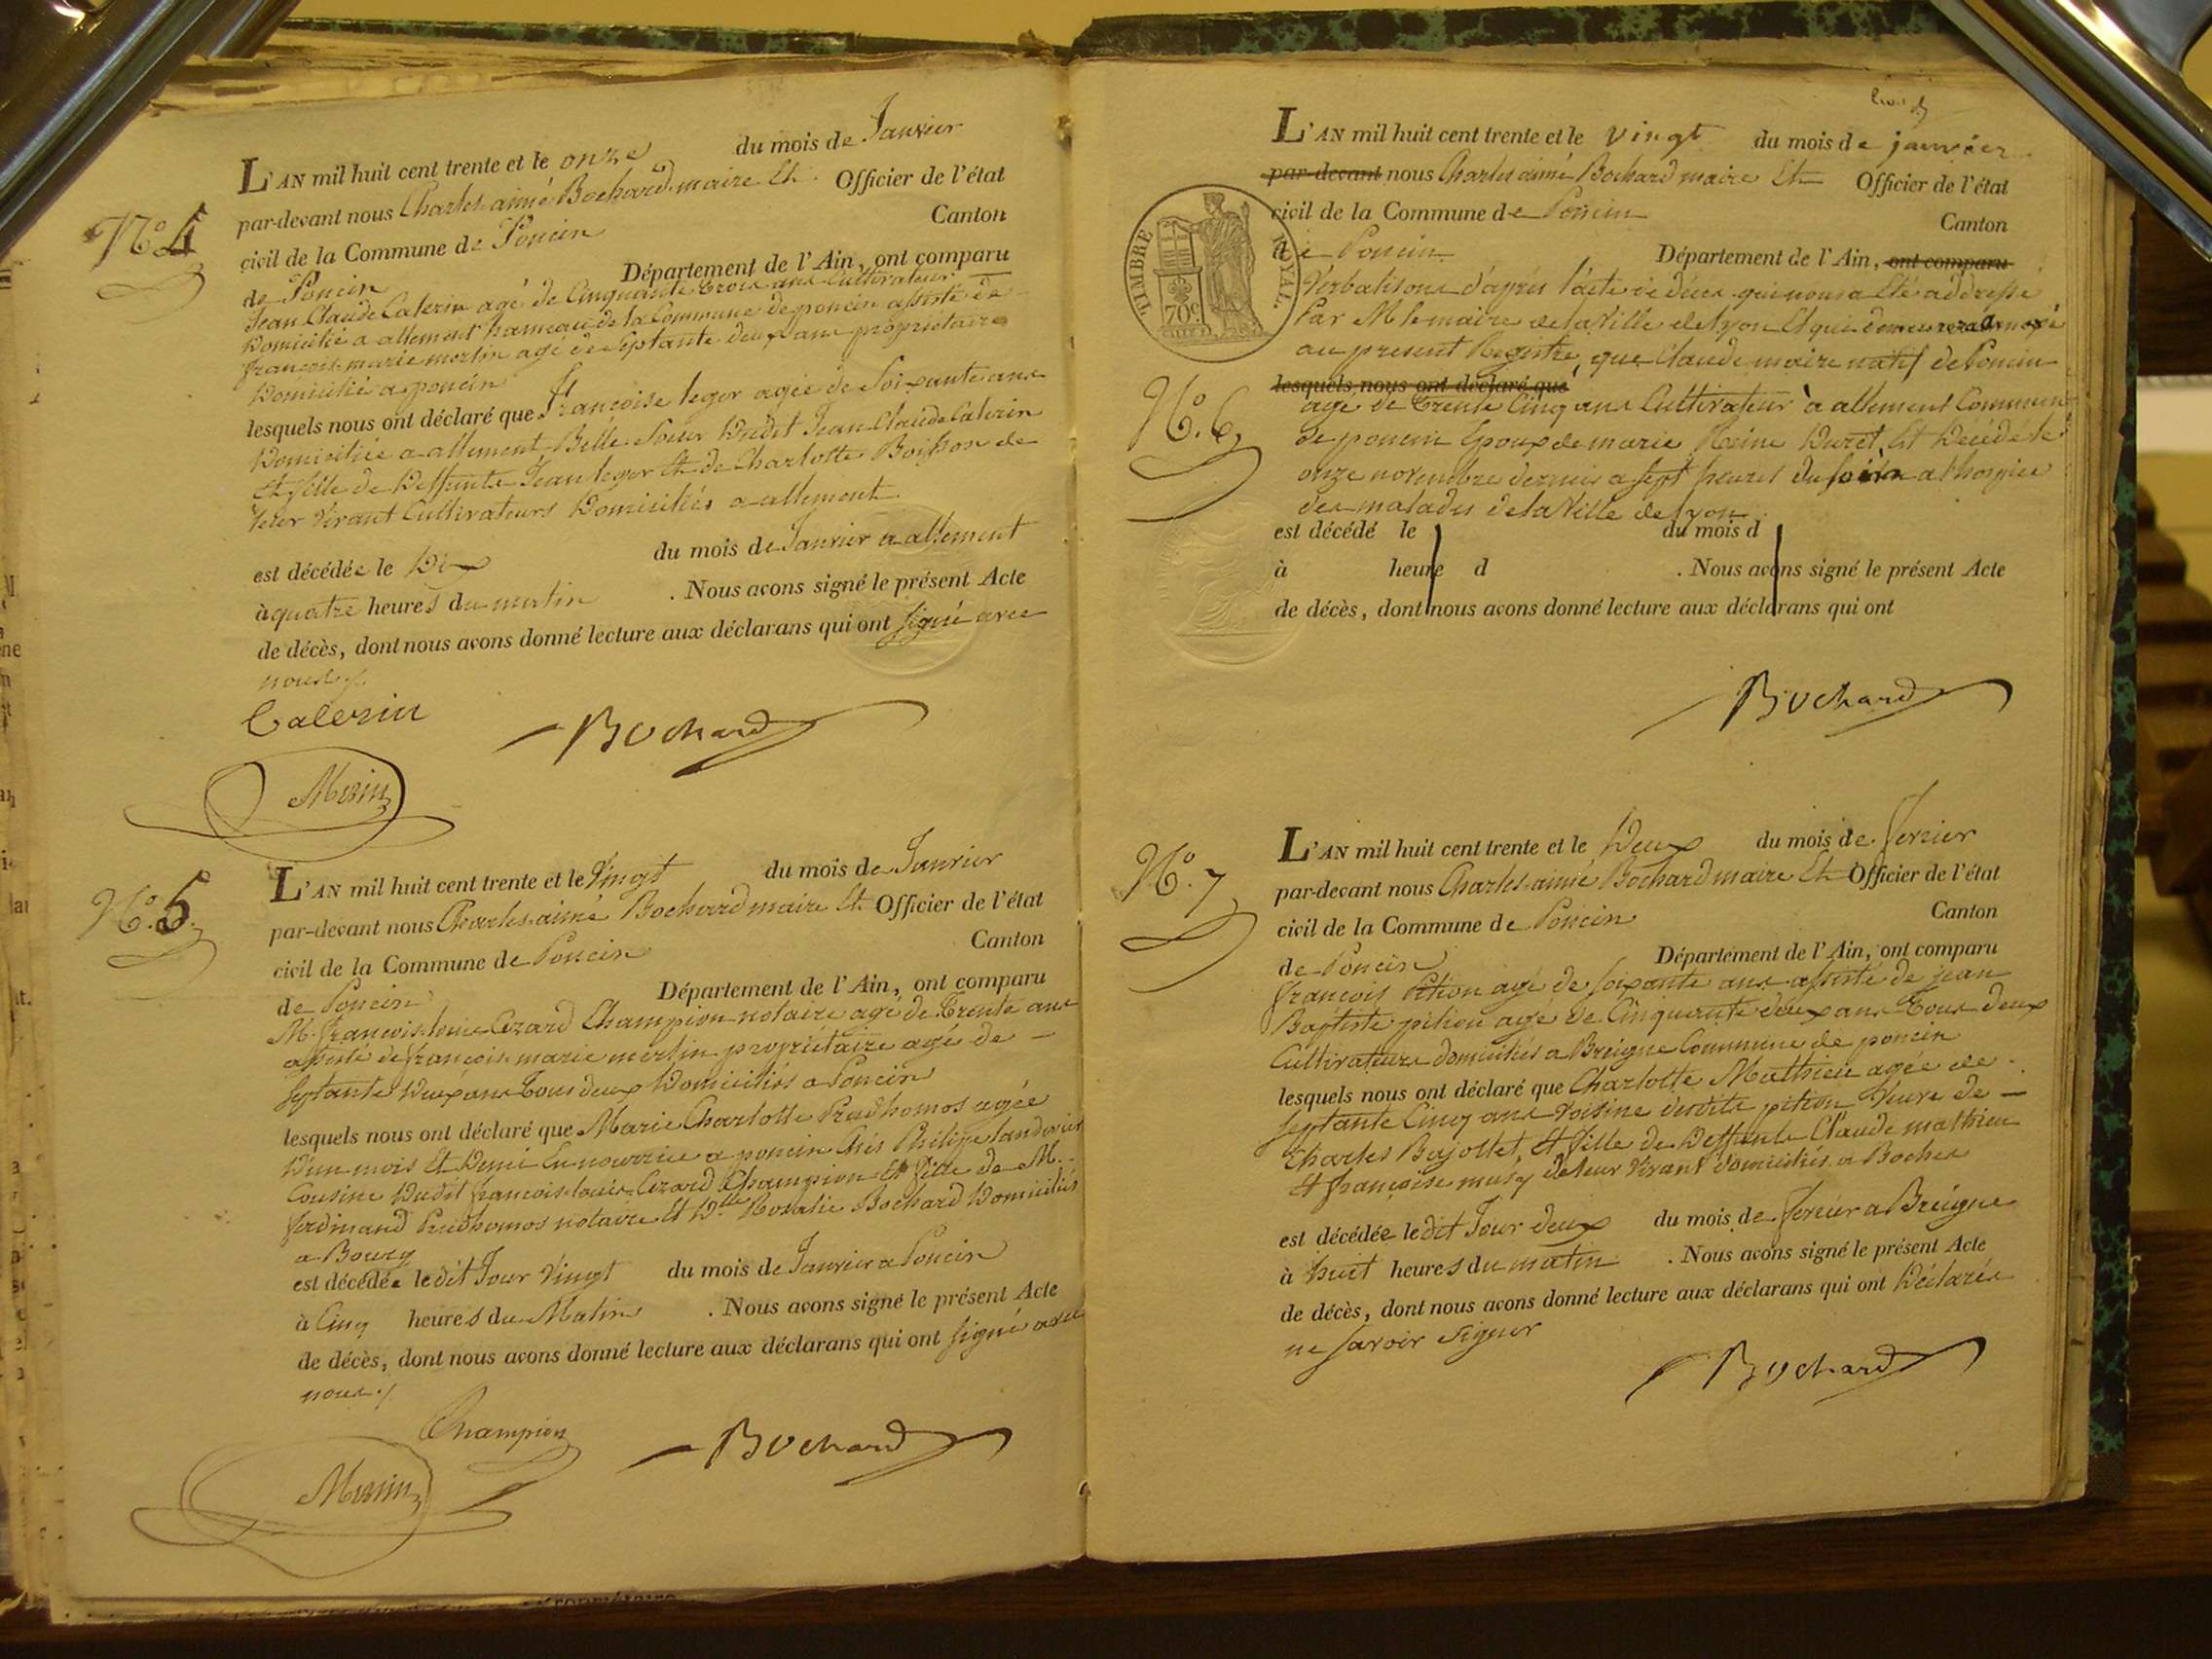 N.º 4
L'AN mil huit cent trente et le onze du mois de Janvier
par-devant nous Charles aimé Bochard maire Et Officier de l'état
civil de la Commune de Poncin Canton
de Poncin Département de l'Ain, ont comparu
Jean Claude Calerin agé de Cinquante trois ans Cultivateur
Domicilié a allement hameau de la Commune de poncin assisté de
françois marie merlin agé de Septante deux ans propriétaire
Domicilié a poncin
lesquels nous ont déclaré que françoise leger agée de Soixante ans
Domiciliée a allement Belle Soeur Dudit Jean Claude Calerin
Et fille de Deffunts Jean leger Et de Charlotte Boisson de
leur Vivant Cultivateurs Domiciliés a allement
est décédée le Dix du mois de Janvier a allement
à quatre heures du matin . Nous avons signé le présent Acte
de décès, dont nous avons donné lecture aux déclarans qui ont Signé avec
nous
Calerin Bochard
N.º 5
L'AN mil huit cent trente et le Vingt du mois de Janvier
par-devant nous Charles aimé Bochard maire Et Officier de l'état
civil de la Commune de Poncin Canton
de Poncin Département de l'Ain, ont comparu
M. françois louis Cezard Champion notaire agé de Trente ans
assisté de françois marie merlin propriétaire agé de
Septante Deux ans Tous deux Domiciliés a Poncin
lesquels nous ont déclaré que Marie Charlotte Prudhomos agée
D'un mois Et Demi En nourrice a poncin Chés Philipe
Cousine Dudit françois louis Cezard Champion Et fille de M.
ferdinand Prudhomos notaire Et D.lle Rosalie Bochard Domiciliés
a Bourg
est décédée le dit Jour Vingt du mois de Janvier a Poncin
à Cinq heures du Matin . Nous avons signé le présent Acte
de décès, dont nous avons donné lecture aux déclarans qui ont Signé avec
nous
Champion Bochard
TIMBRE ROYAL.
70c
L'AN mil huit cent trente et le Vingt du mois de janvier
par-devant nous Charles aimé Bochard maire Et Officier de l'état
civil de la Commune de Poncin Canton
de Poncin Département de l'Ain, ont comparu
Verbalisons d'après l'acte de décès qui nous a Eté addressé
Par M le maire de la Ville de lyon Et qui demeurera annexé
au present Registre, que Claude maire natif de Poncin
lesquels nous ont déclaré que
N.º 6
agé de Trente Cinq ans Cultivateur à allement Commune
de poncin Epoux de marie Reine Duret, Et Décédé le
onze novembre dernier a Sept heures du soir a l'hospice
des malades de la Ville de lyon
est décédé le du mois d
à heure d . Nous avons signé le présent Acte
de décès, dont nous avons donné lecture aux déclarans qui ont
Bochard
N.º 7
L'AN mil huit cent trente et le Deux du mois de fevrier
par-devant nous Charles aimé Bochard maire Et Officier de l'état
civil de la Commune de Poncin Canton
de Poncin Département de l'Ain, ont comparu
françois pition agé de soixante ans assisté de jean
Baptiste pition agé de Cinquante deux ans Tous deux
Cultivateurs domiciliés a Breigne Commune de poncin
lesquels nous ont déclaré que Charlotte Mathieu agée de
Septante Cinq ans Voisine desdits pition Veuve de
Charles Bajollet, Et fille de Deffunts Claude mathieu
Et françoise musy de leur Vivant domiciliés a Boches
est décédée le dit Jour deux du mois de fevrier a Breigne
à huit heures du matin . Nous avons signé le présent Acte
de décès, dont nous avons donné lecture aux déclarans qui ont Déclarés
ne savoir signer
Bochard